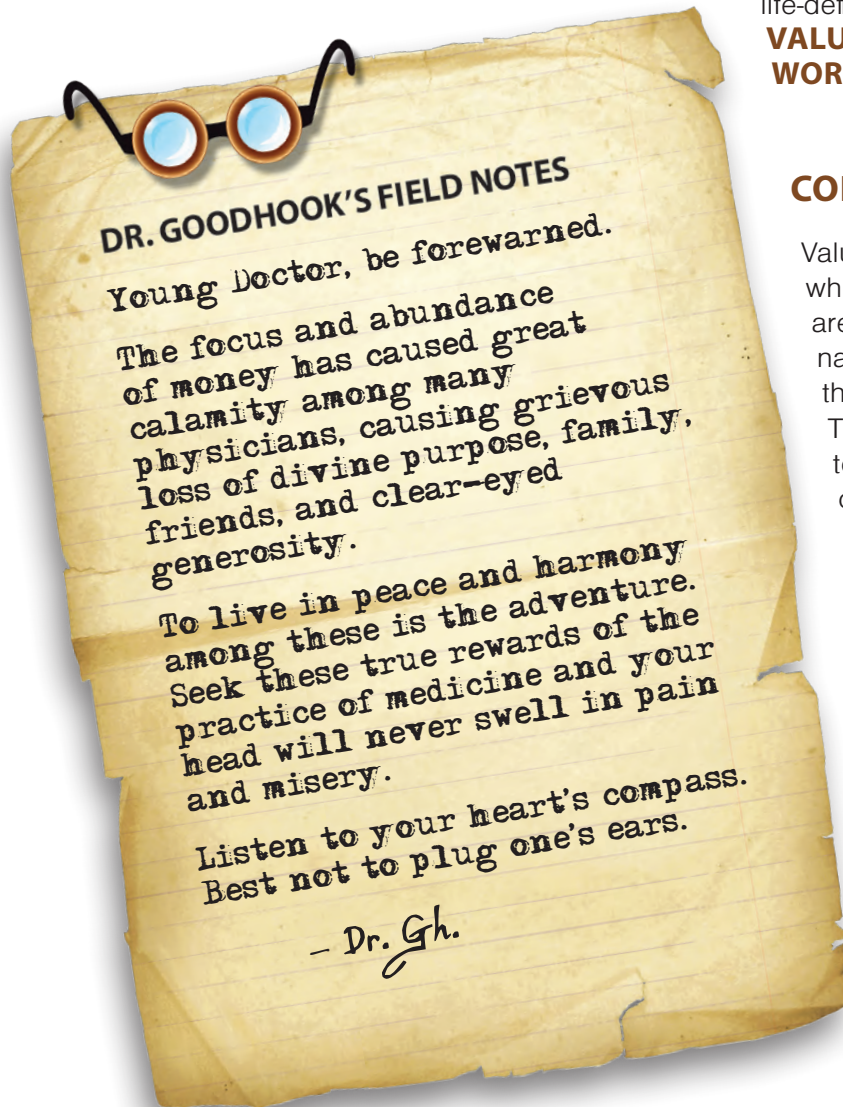 DR. GOODHOOK'S FIELD NOTES
Young Doctor, be forewarned.
The focus and abundance
of money has caused great
calamity among many
physicians, causing grievous
loss of divine purpose, family,
friends, and clear-eyed
generosity.
To live in peace and harmony
among these is the adventure.
Seek these true rewards of the
practice of medicine and your
head will never swell in pain
and misery.
Listen to your heart's compass.
Best not to plug one's ears.
– Dr. Gh.